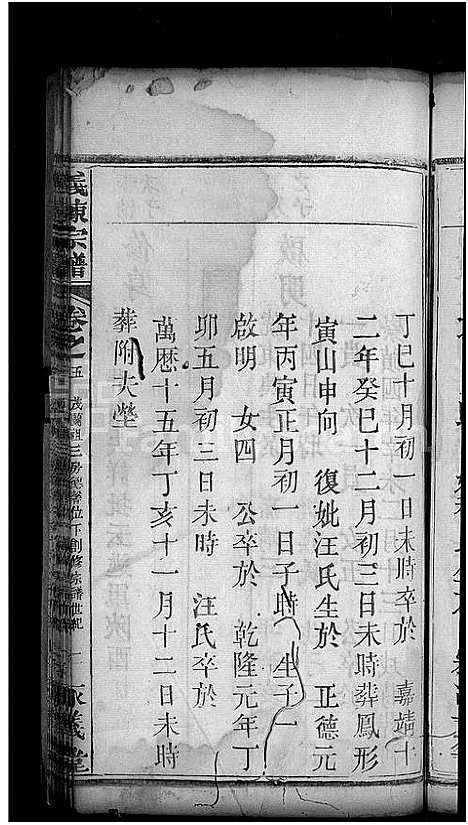 丁巳十月初一日未時卒於　嘉靖十
二年癸巳十二月初三日未時葬鳳形
寅山申向　復妣汪氏生於　正德元
年丙寅正月初一日子時　生子一
啟明　女四　公卒於　乾隆元年丁
卯五月初三日未時　汪氏卒於
萬曆十五年丁亥十一月十二日未時
葬附夫塋
義陳宗譜
卷之五　茂蘭祖三房
位下創修宗譜世紀
義堂